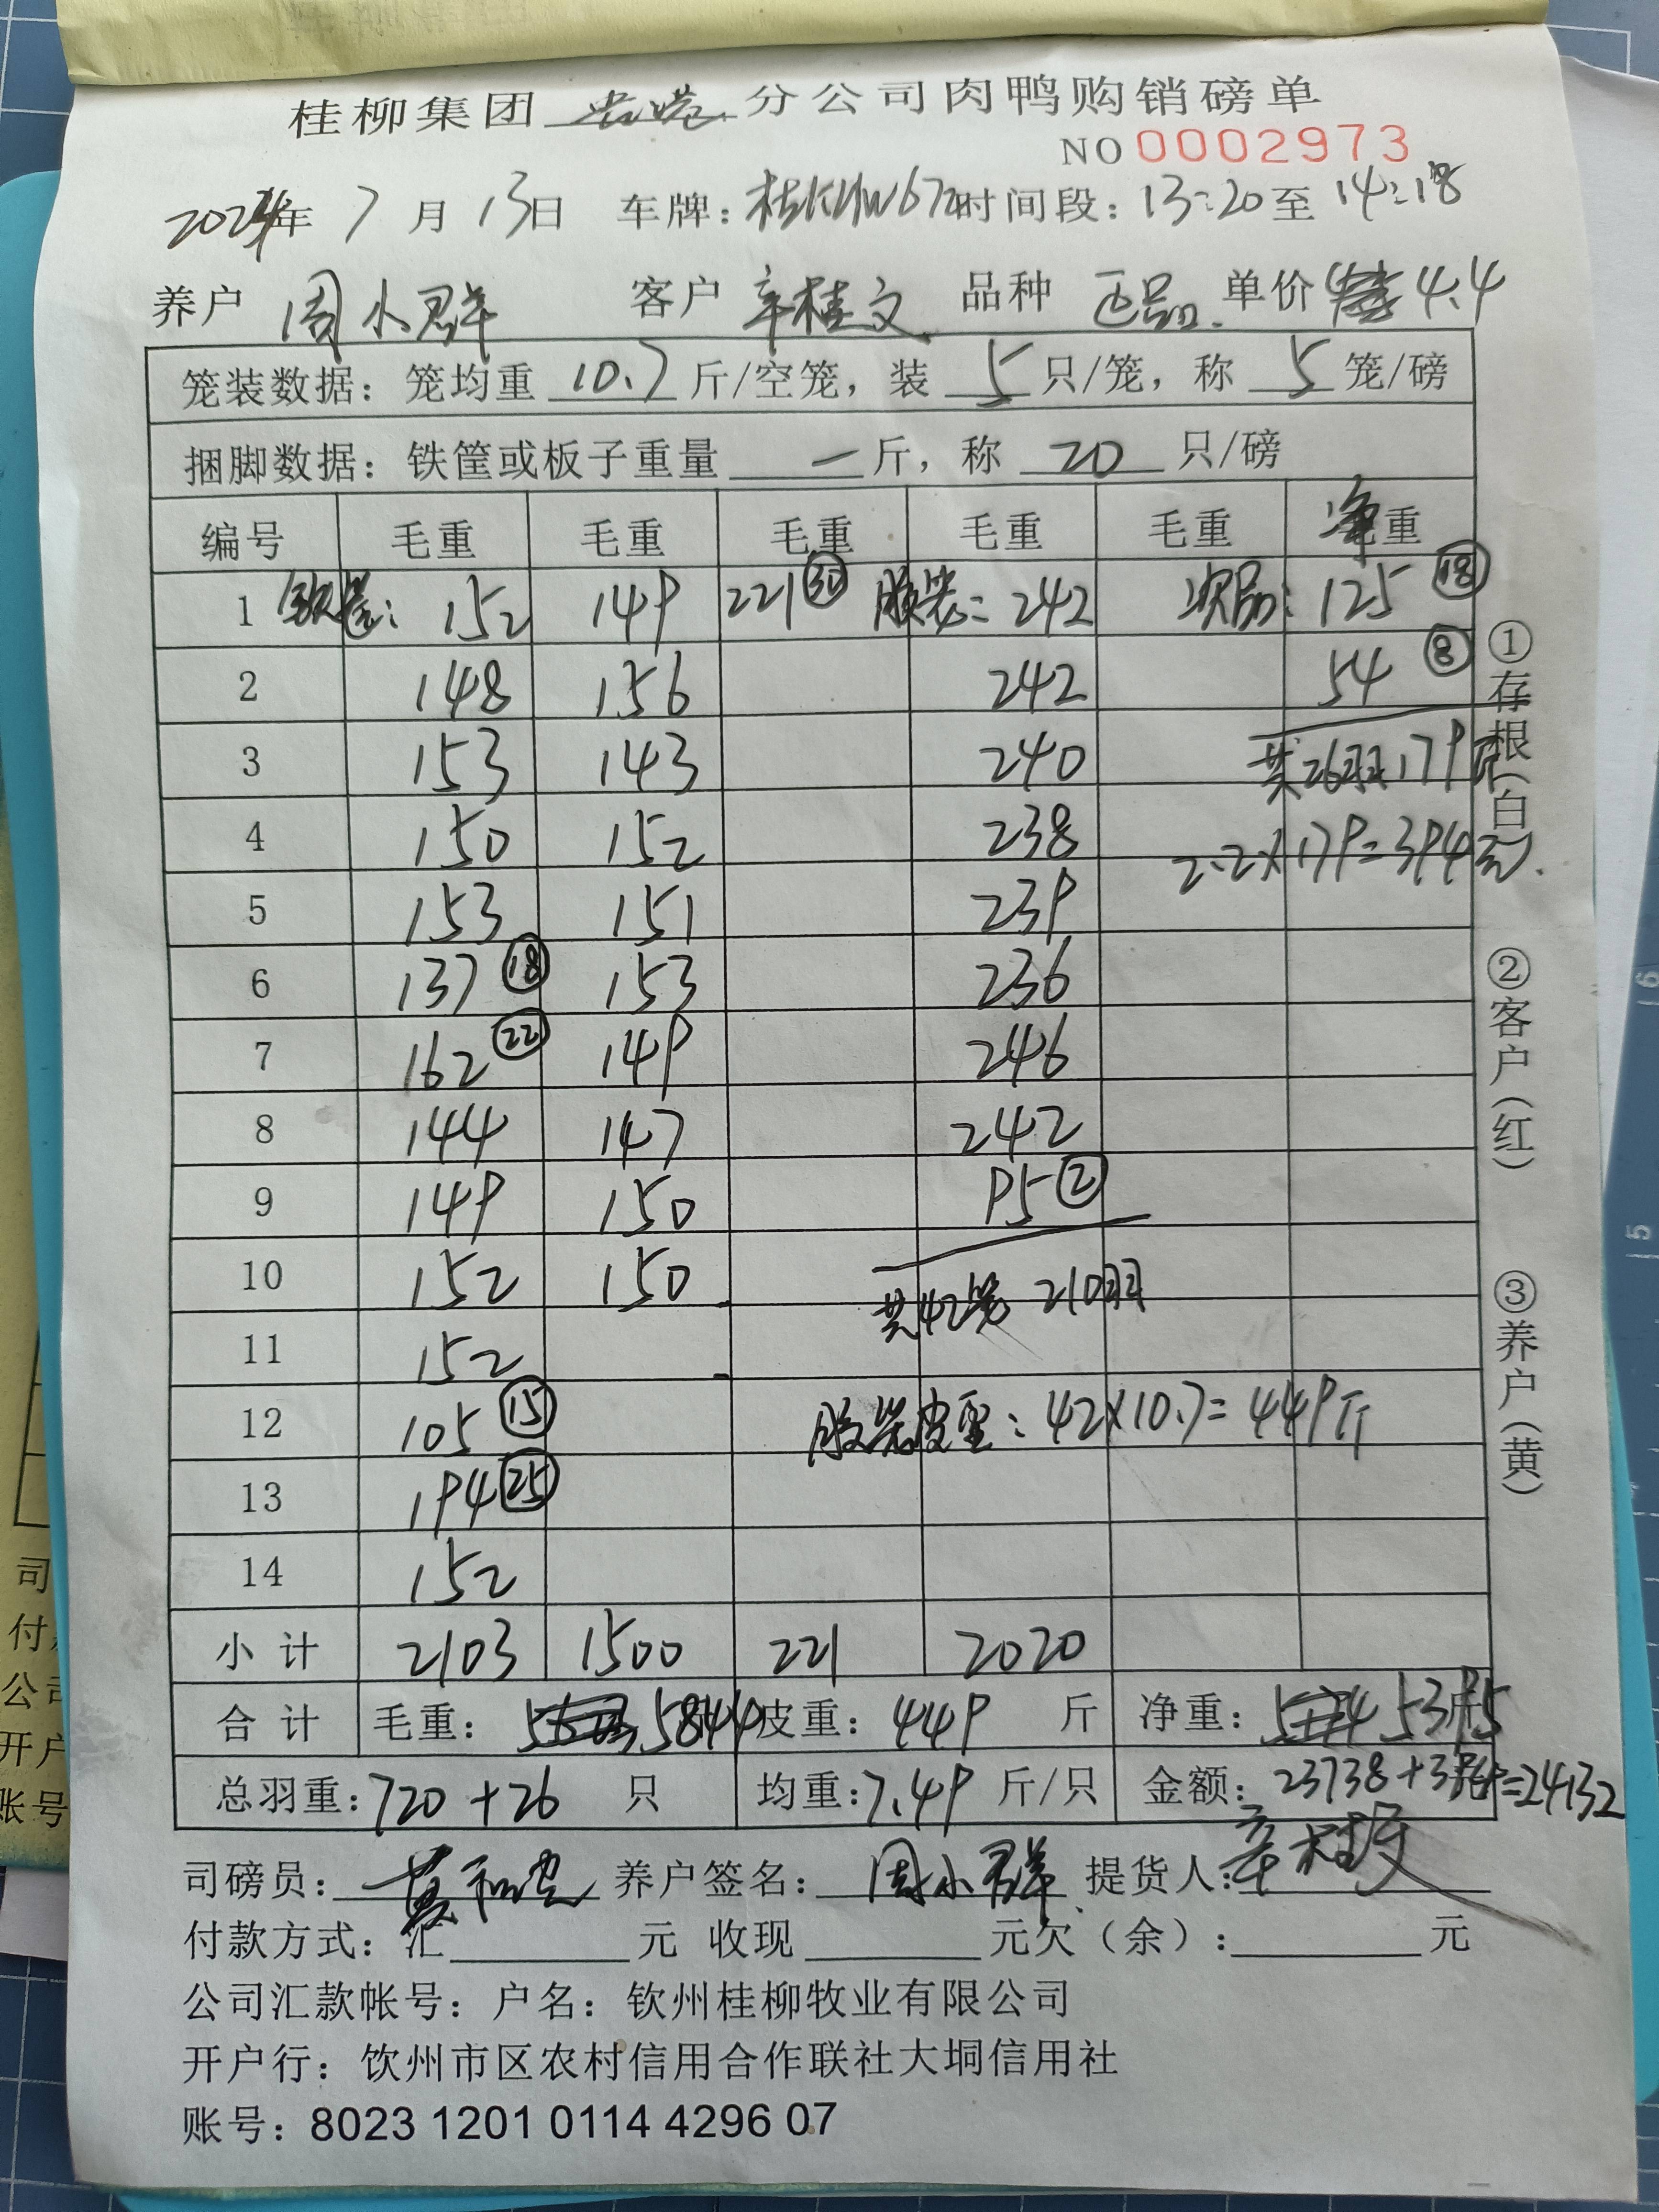 桂柳集团 分公司肉鸭购销磅单
NO 0002973
2024年 7 月 13日 车牌: 时间段: 13:20至 14:18
养户 周小群 客户 辛桂文 品种 正品 单价 4.4
笼装数据: 笼均重 10.7 斤/空笼, 装 5 只/笼, 称 5 笼/磅
捆脚数据: 铁筐或板子重量 — 斤, 称 20 只/磅
编号 毛重 毛重 毛重 毛重 毛重 净重
1 铁筐: 152 149 221 ㉚ 胶笼: 242 次品: 125 ⑱
2 148 156 242 54 ⑧
3 153 143 240 共26羽179斤
4 150 152 238 2.2×179=394元
5 153 151 239
6 137 ⑱ 153 236
7 162 ㉒ 149 246
8 144 147 242
9 149 150 95 ②
10 152 150 共42笼 210羽
11 152
12 105 ⑮ 胶笼皮重: 42×10.7=449斤
13 194 ㉕
14 152
小计 2103 1500 221 2020
合计 毛重: 5844 皮重: 449 斤 净重: 5395
总羽重: 720+26 只 均重: 7.49 斤/只 金额: 23738+394=24132
司磅员: 养户签名: 周小群 提货人: 辛桂文
付款方式: 汇 元 收现 元欠(余): 元
公司汇款帐号: 户名: 钦州桂柳牧业有限公司
开户行: 钦州市区农村信用合作联社大垌信用社
账号: 8023 1201 0114 4296 07
①存根(白)
②客户(红)
③养户(黄)
司
付
公司
开户
账号